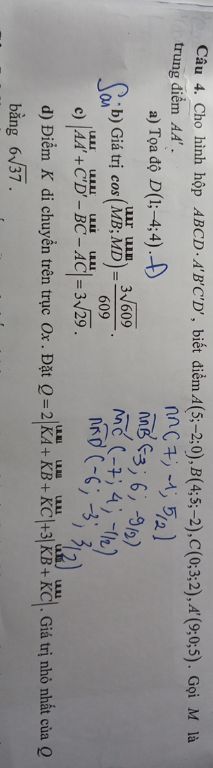 Câu 4. Cho hình hộp ABCD.A'B'C'D', biết điểm A(5;-2;0), B(4;5;-2), C(0;3;2), A'(9;0;5). Gọi M là
trung điểm AA'.
a) Tọa độ D(1;-4;4).
b) Giá trị cos(MB;MD) = 3√609/609.
c) |AA' + C'D' - BC - AC| = 3√29.
d) Điểm K di chuyển trên trục Ox. Đặt Q = 2|KA + KB + KC| + 3|KB + KC|. Giá trị nhỏ nhất của Q
bằng 6√37.
Sai
M(7; -1; 5/2)
MB(-3; 6; -9/2)
MC(-7; 4; -1/2)
MD(-6; -3; 3/2)